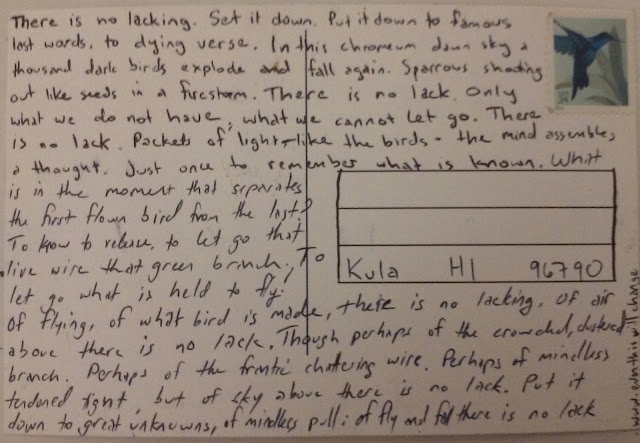 There is no lacking. Set it down. Put it down to famous
last words, to dying verse. In this chromeum dawn sky a
thousand dark birds explode and fall again. Sparrows shooting
out like seeds in a firestorm. There is no lack. Only
what we do not have, what we cannot let go. There
is no lack. Packets of light - like the birds - the mind assembles
a thought. Just once to remember what is known. What
is in the moment that separates
the first flown bird from the last?
To know to release, to let go that
live wire that green branch, To
let go what is held to fly.
Of flying, of what bird is made, there is no lacking. Of air
above there is no lack. Though perhaps of the crowded, clustered
branch. Perhaps of the frantic chattering wire. Perhaps of mindless
tendoned fight, but of sky above there is no lack. Put it
down to great unknowns, of mindless pull: of fly and fall there is no lack
Kula HI 96790